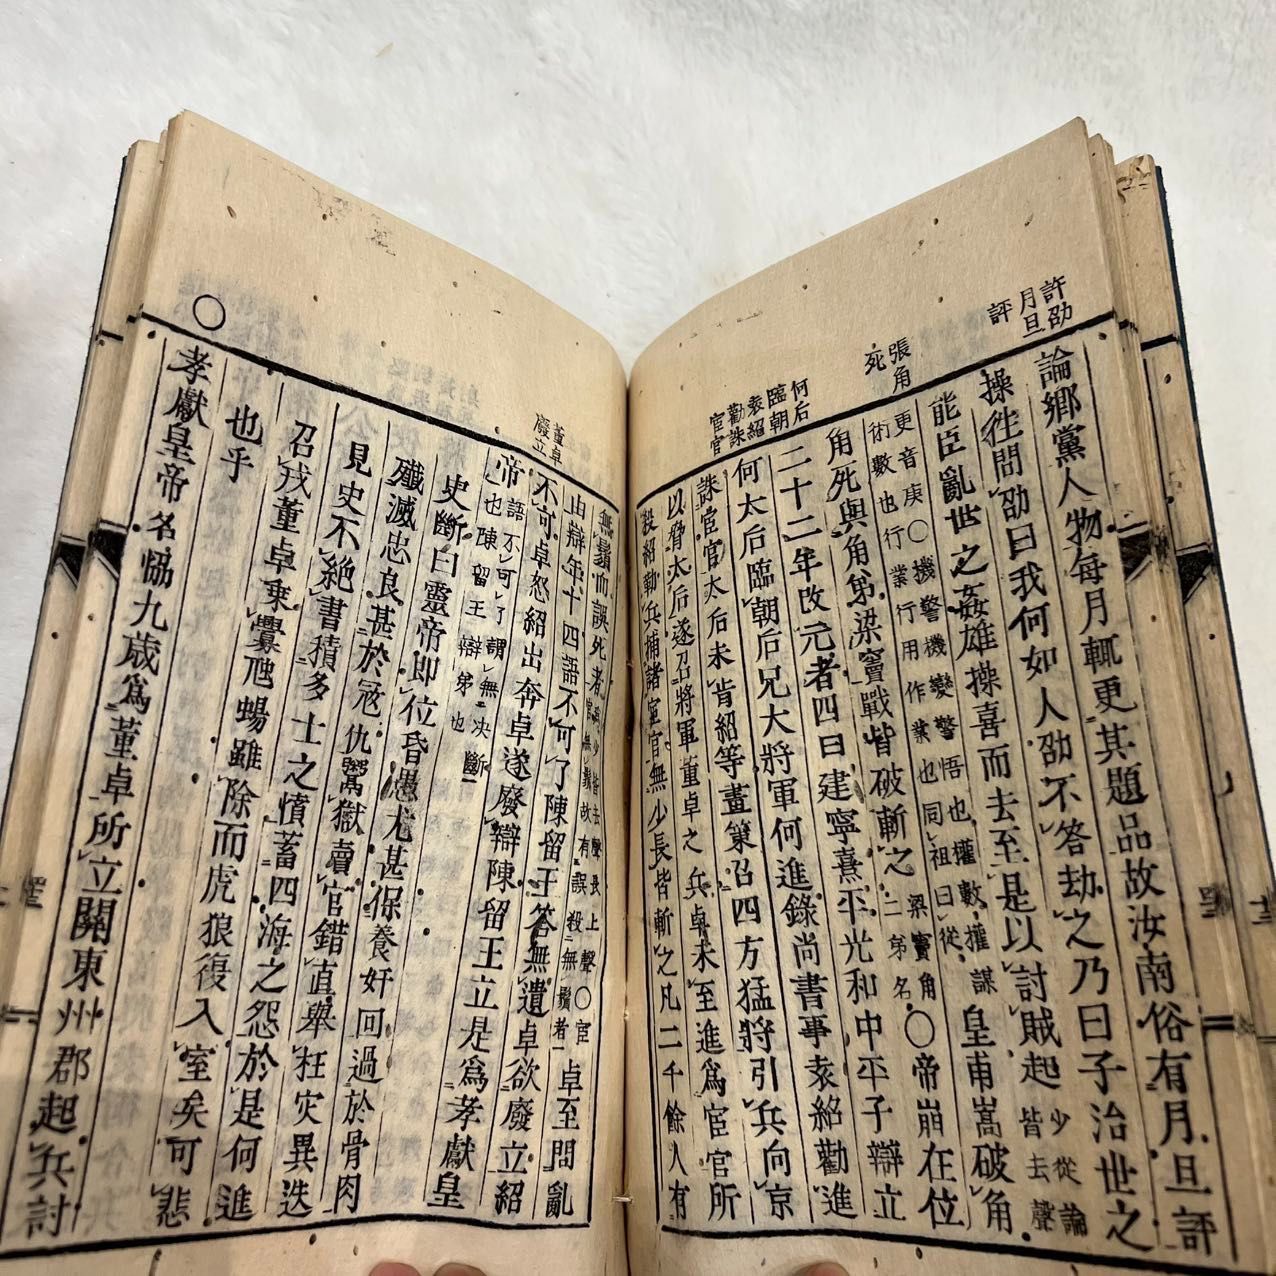 許劭
月旦
評
張角
死
何后
臨朝
袁紹
勸誅
宦官
論鄉黨人物每月輒更其題品故汝南俗有月旦評
操徃問劭曰我何如人劭不答劫之乃曰子治世之
能臣亂世之姦雄操喜而去至是以討賊起少從論
皆去聲
更音庚○機警機變警悟也權數權謀
術數也行業行用作業也同祖曰從
皇甫嵩破角
角死與角弟梁竇戰皆破斬之梁竇角
二弟名
○帝崩在位
二十二年改元者四曰建寧熹平光和中平子辯立
何太后臨朝后兄大將軍何進錄尚書事袁紹勸進
誅宦官太后未肯紹等畫策召四方猛將引兵向京
以脅太后遂召將軍董卓之兵卓未至進爲宦官所
殺紹勒兵捕諸宦官無少長皆斬之凡二千餘人有
董卓
廢立
無鬚而誤死者
少皆去聲長上聲○宦
官無鬚故有誤殺無鬚者
卓至問亂
由辯年十四語不可了陳留王答無遺卓欲廢立紹
不可卓怒紹出奔卓遂廢辯陳留王立是爲孝獻皇
帝
語不可了謂無決斷
也陳留王辯弟也
史斷曰靈帝即位昏愚尤甚保養奸回過於骨肉
殲滅忠良甚於冦仇鬻獄賣官錯直舉枉灾異迭
見史不絕書積多士之憤蓄四海之怨於是何進
召戎董卓乘釁虺蜴雖除而虎狼復入室矣可悲
也乎
○
孝獻皇帝名協九歲爲董卓所立關東州郡起兵討